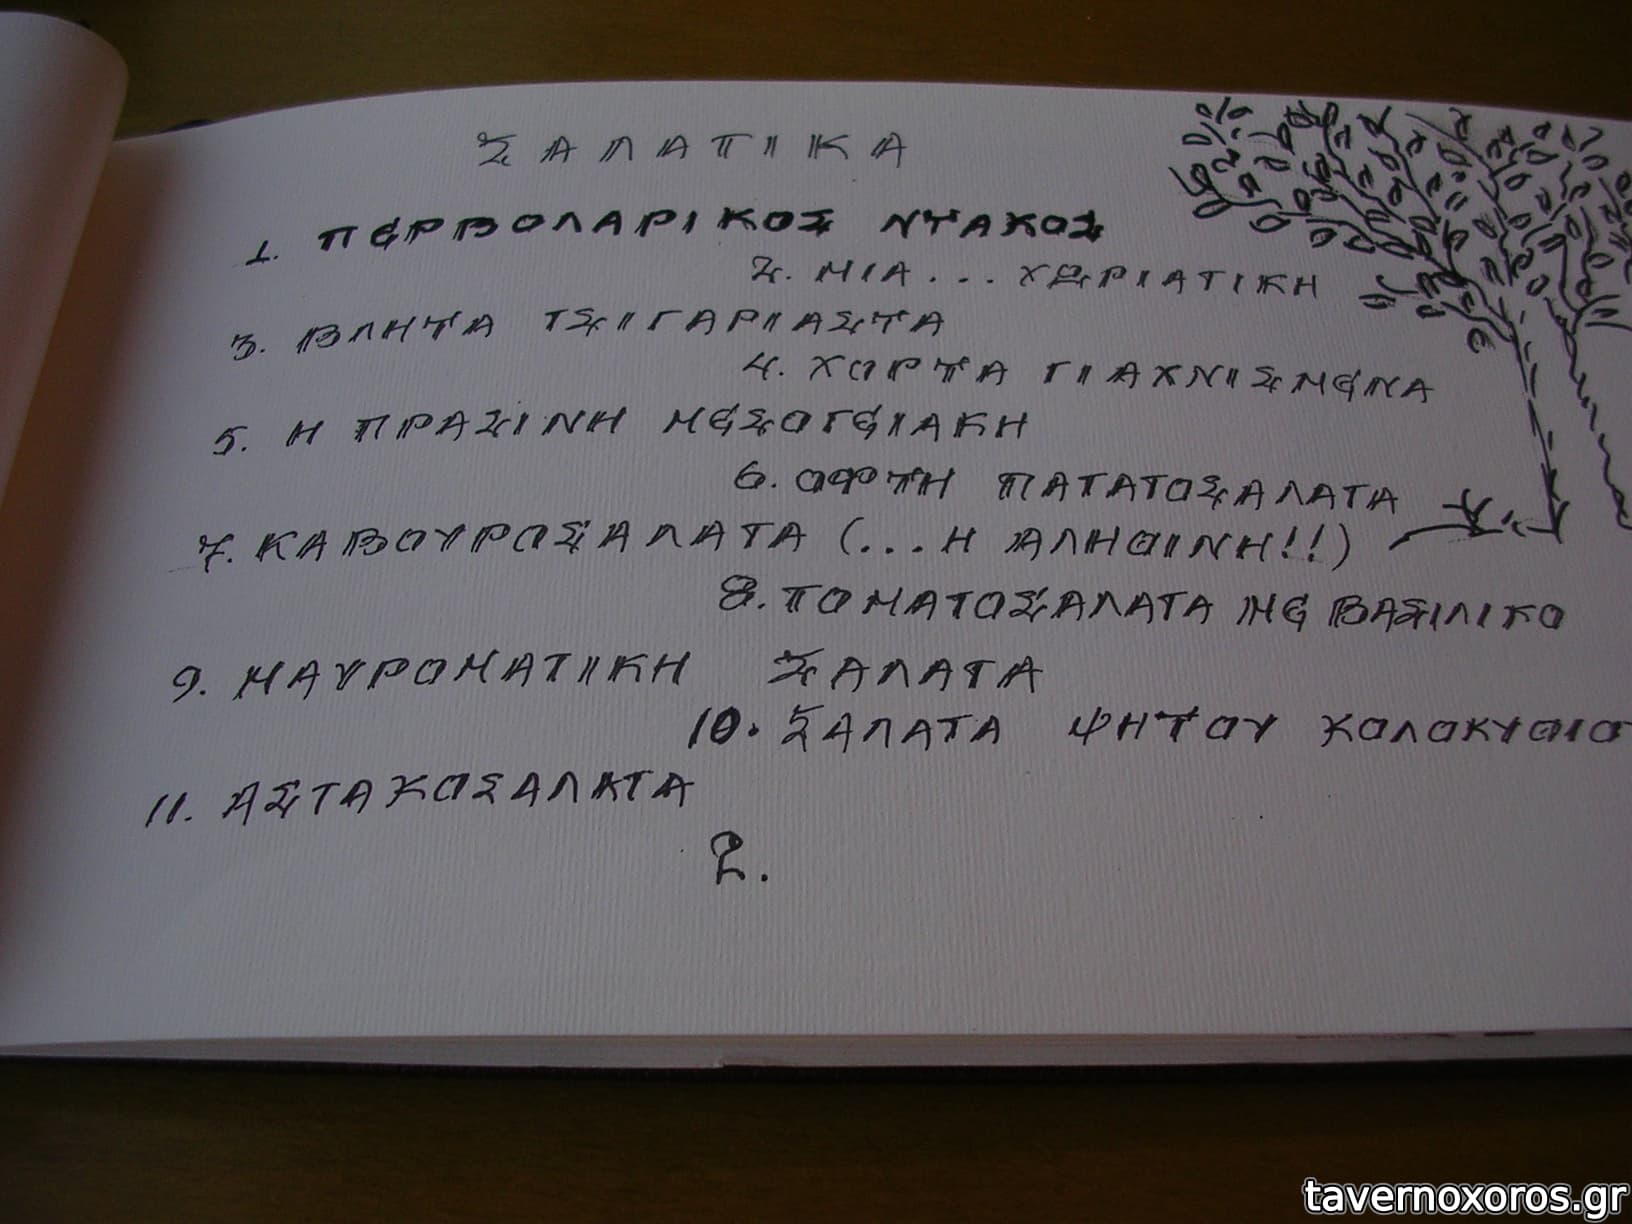 ΣΑΛΑΤΙΚΑ
1. ΠΕΡΒΟΛΑΡΙΚΟΣ ΝΤΑΚΟΣ
2. ΜΙΑ... ΧΩΡΙΑΤΙΚΗ
3. ΒΛΗΤΑ ΤΣΙΓΑΡΙΑΣΤΑ
4. ΧΟΡΤΑ ΓΙΑΧΝΙΣΜΕΝΑ
5. Η ΠΡΑΣΙΝΗ ΜΕΣΟΓΕΙΑΚΗ
6. ΟΦΤΗ ΠΑΤΑΤΟΣΑΛΑΤΑ
7. ΚΑΒΟΥΡΟΣΑΛΑΤΑ (...Η ΑΛΗΘΙΝΗ!!)
8. ΤΟΜΑΤΟΣΑΛΑΤΑ ΜΕ ΒΑΣΙΛΙΚΟ
9. ΜΑΥΡΟΜΑΤΙΚΗ ΣΑΛΑΤΑ
10. ΣΑΛΑΤΑ ΨΗΤΟΥ ΚΟΛΟΚΥΘΙΟ
11. ΑΣΤΑΚΟΣΑΛΑΤΑ
2.
tavernoxoros.gr